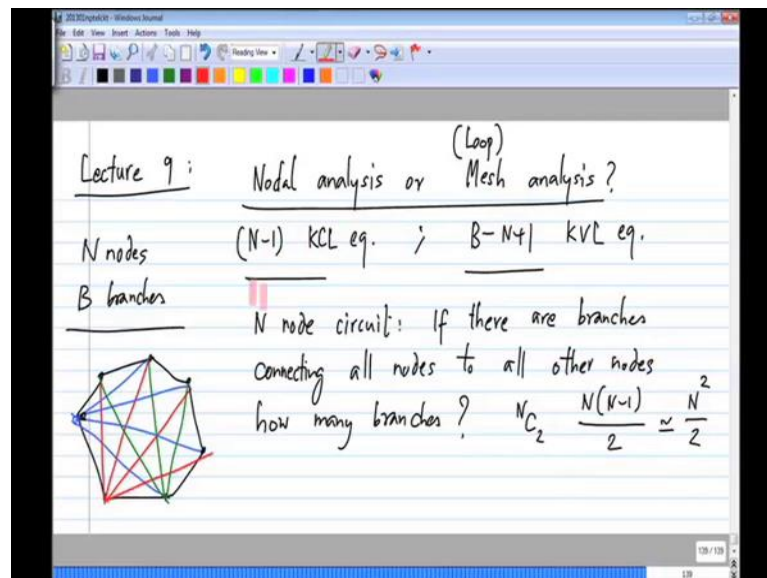 201301nptelckt - Windows Journal
File Edit View Insert Actions Tools Help
Reading View
Lecture 9 :
(Loop)
Nodal analysis or Mesh analysis ?
N nodes
B branches
(N-1) KCL eq. ; B-N+1 KVL eq.
N node circuit: If there are branches
connecting all nodes to all other nodes
how many branches ? ᴺC₂ N(N-1)/2 ≃ N²/2
139 / 139
139